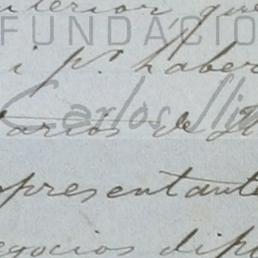 nterior que
FUNDACIO
i pr. haber
Carlos Sli
tarios de
presentante
egocios dip